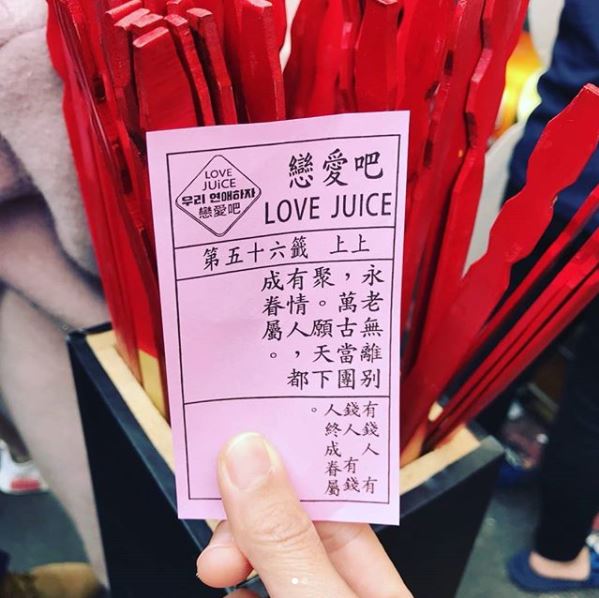 LOVE
JUiCE
우리 연애하자
戀愛吧
戀愛吧
LOVE JUICE
第五十六籤 上上
永老無離別
，萬古當團
聚。願天下
有情人，都
成眷屬。
有錢人 有
錢人 有錢
人終成眷屬
。